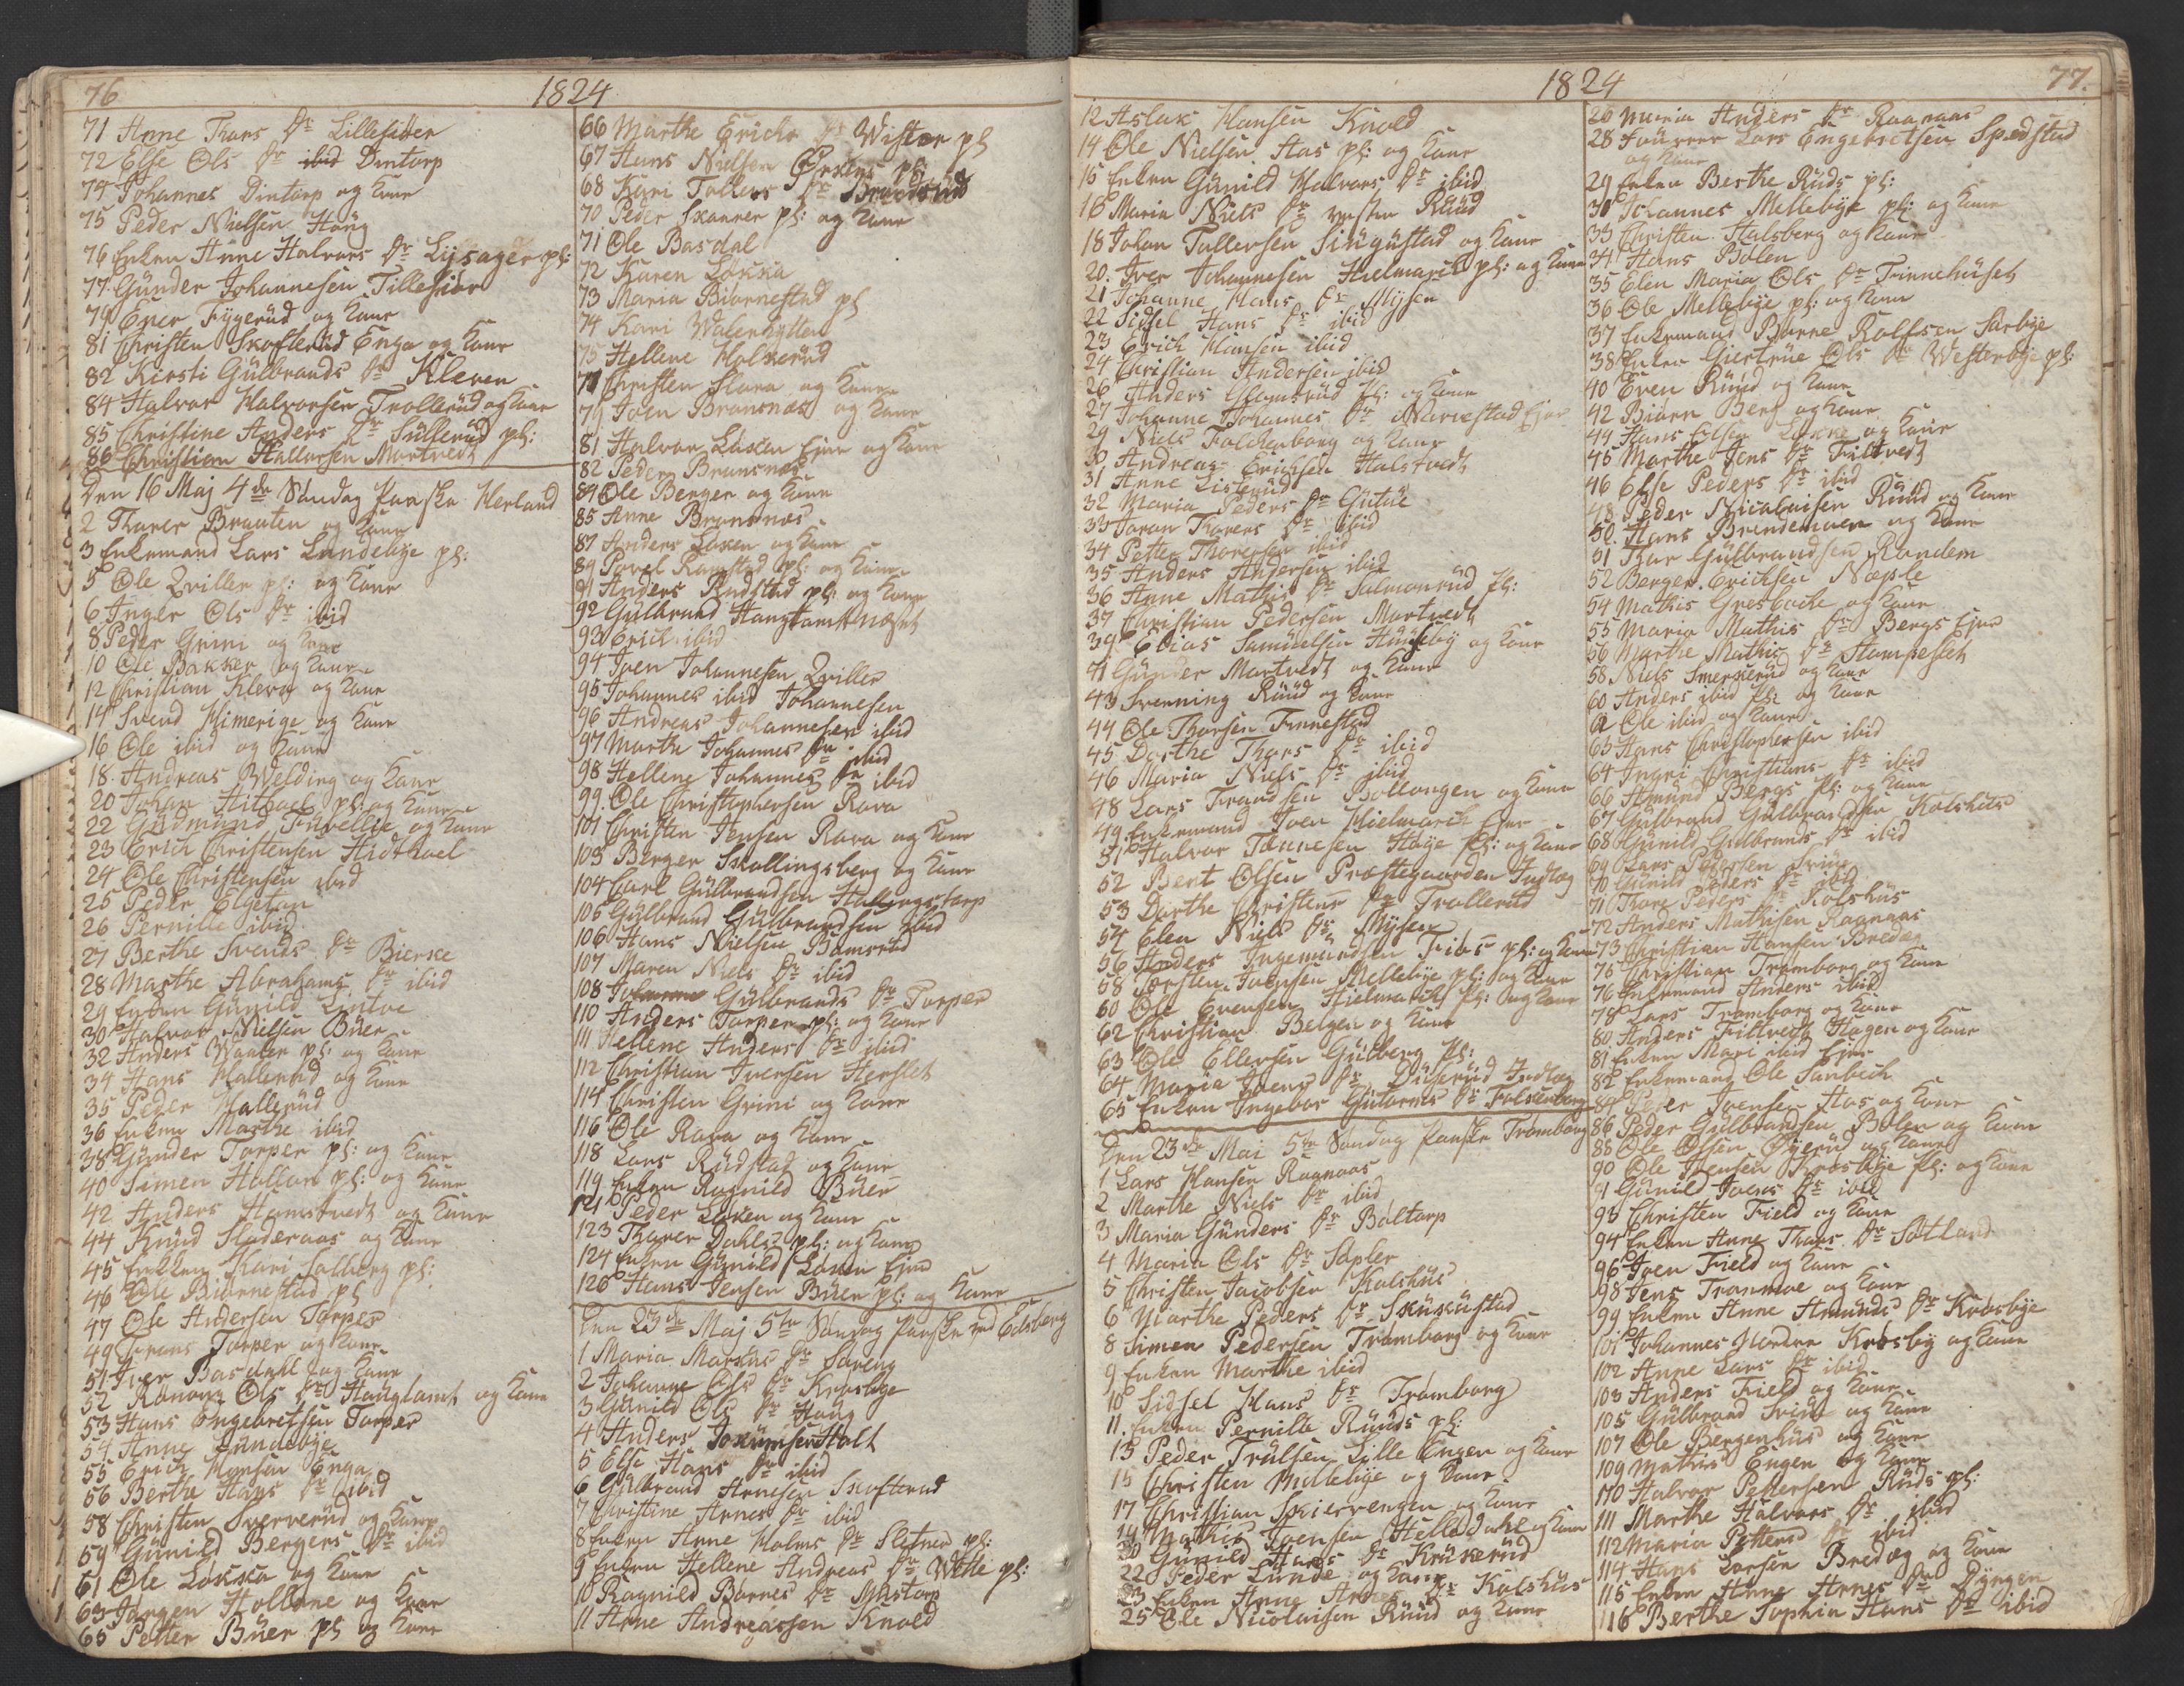 76
1824
71 Anne Thors Dr Lillesæter
72 Else Ols Dr ibid Dintorp
74 Johannes Dintorp og Kone
75 Peder Nielsen Houg
76 Enken Anne Halvors Dr Lysager pl:
77 Gunder Johannesen Tillesiør
79 Ener Fygerud og Kone
81 Christen Skofterud Enga og Kone
82 Kirsti Gulbrands Dr Kleven
84 Halvor Halvorsen Trollerud og Kone
85 Christine Anders Dr Sullerud pl:
86 Christian Hallersen Mortvedt
Den 16 Maj 4de Søndag Paaske Herland
2 Thorer Braaten og Kone
3 Enkemand Lars Lundebye pl:
5 Ole Zviller pl: og Kone
6 Inger Ols Dr ibid
8 Peder Grini og Kone
10 Ole Bakker og Kone
12 Christian Kleven og Kone
14 Svend Himerige og Kone
16 Ole ibid og Kone
18 Andreas Welding og Kone
20 Johan pl: og Kone
22 Gudmund Furellie og Kone
23 Erich Christensen
24 Ole Christensen ibid
25 Peder Elgetun
26 Pernille ibid
27 Berthe Svends Dr Bierke
28 Marthe Abrahams Dr ibid
29 Enken Gunild
30 Halvor Nielsen Buer
32 Anders Waaler pl: og Kone
34 Hans Hallerud og Kone
35 Peder Hallerud
36 Enken Marthe ibid
38 Gunder Torper pl: og Kone
40 Simen Hollon pl: og Kone
42 Anders Hamstvedt og Kone
44 Knud Sladeraas og Kone
45 Enken Kari Solberg pl:
46 Ole Biørnestad pl
47 Ole Andersen Torper
49 Frans Torper og Kone
51 Iver Basdahl og Kone
52 Ranoug Ols Dr Hauglamt og Kone
53 Hans Engebretsen Torper
54 Anne Lundebye
55 Erich Hansen Enga
56 Berthe Hans Dr ibid
58 Christen Sververud og Kone
59 Gunild Bergers Dr ibid
61 Ole Løkka og Kone
63 Jørgen Hollene og Kone
65 Petter Buer pl og Kone
66 Marthe Erichs Dr Wister pl
67 Hans Nielsen Ørkens pl:
68 Kari Tollers Dr
70 Peder Skanner pl: og Kone
71 Ole Basdal
72 Karen Løkka
73 Maria Biørnestad pl
74 Kari Walerhytten
75 Hellene Holkerud
77 Christen Slora og Kone
79 Joen Bransnæs og Kone
81 Halvor Løken Eier og Kone
82 Peder Bransnæs
84 Ole Berger og Kone
85 Anne Bransnæs
87 Anders Løken og Kone
89 Povel Ramstad pl: og Kone
91 Anders Rudstad pl: og Kone
92 Gulbrand
93 Erich ibid
94 Joen Johannesen Zviller
95 Johannes ibid Johannesen
96 Andreas Johannesen ibid
97 Marthe Johannes Dr ibid
98 Hellene Johannes Dr ibid
99 Ole Christophersen Rava
101 Christen Jensen Rava og Kone
103 Berger Skollingsberg og Kone
104 Carl Gulbrandsen Hallingstorp
105 Gulbrand Gulbrandsen ibid
106 Hans Nielsen Bamsrud
107 Maren Niels Dr ibid
108 Johanne Gulbrands Dr Torper
110 Anders Torper pl: og Kone
111 Hellene Anders Dr ibid
112 Christian Iversen Herslet
114 Christen Grini og Kone
116 Ole Rava og Kone
118 Lars Rudstad og Kone
119 Enken Ragnild Buer
121 Peder Løken og Kone
123 Thorer Dahls pl: og Kone
124 Enken Gunild Løken Eier
126 Hans Jensen Buer pl: og Kone
Den 23de Maj 5te Søndag Paaske ved Edsberg
1 Maria Marthis Dr Søreng
2 Johanne Ols Dr Krosbye
3 Gunild Ols Dr Houg
4 Anders Jokumsen Holt
5 Else Hans Dr ibid
6 Gulbrand Arnesen Skofterud
7 Christine Arnes Dr ibid
8 Enken Anne Holms Dr Sletner pl:
9 Enken Hellene Andreas Dr Wette pl:
10 Ragnild Bornes Dr
11 Arne Andreassen Knold
1824
77.
12 Aslak Hansen Knold
14 Ole Nielsen Aas pl: og Kone
15 Enken Gunild Halvors Dr ibid
16 Maria Niels Dr vestre Ruud
18 Johan Tollersen Singustad og Kone
20. Iver Johannesen Hielmark pl: og Kone
21 Johanne Hans Dr Mysen
22 Sidsel Hans Dr ibid
23 Erich Hansen ibid
24 Christian Andersen ibid
26 Anders Glomsrud Pl: og Kone
27 Johanne Johannes Dr Narvestad Eier
29 Niels Falckenborg og Kone
30 Andreas Erichsen Halstvedt
31 Anne Listerud
32 Maria Peders Dr Gutue
33 Joran Thorers Dr ibid
34 Petter Thoresen ibid
35 Anders Andersen ibid
36 Anne Mathis Dr Salmonrud Pl:
37 Christian Pedersen Mortvedt
39 Elias Samuelsen Huseby og Kone
41 Gunder Mortvedt og Kone
43 Svenning Ruud og Kone
44 Ole Thorsen Finnestad
45 Dorthe Thors Dr ibid
46 Maria Niels Dr ibid
48 Lars Frandsen Bollongen og Kone
49 Enkemand Joen Hielmark Eier
51 Halvor Tønnesen Høye Pl: og Kone
52 Bent Olsen Præstegaarden Indlæg
53 Dorthe Christens Dr Trollerud
54 Elen Niels Dr Mysen
56 Anders Ingemundsen Fiøs pl: og Kone
58 Torsten Joensen Mellebye pl: og Kone
60 Ole Evensen Hielmark Pl: og Kone
62 Christian Bergen og Kone
63 Ole Ellersen Gulberg Pl:
64 Maria Joens Dr Duserud Indlæg
65 Enken Ingebor Gutorms Dr Falkenborg
Den 23de Mai 5te Søndag Paaske Trømborg
1 Lars Hansen Raanaas
2 Marthe Niels Dr ibid
3 Maria Gunders Dr Baltorp
4 Maria Ols Dr Sapler
5 Christen Jacobsen Kolshus
6 Marthe Peders Dr Skukustad
8 Simen Pedersen Trømborg og Kone
9 Enken Marthe ibid
10 Sidsel Hans Dr Trømborg
11. Enken Pernille Ruuds pl:
13 Peder Trulsen Lille Engen og Kone
15 Christen Mellebye og Kone
17 Christian Skiervengen og Kone
19 Mathis Joensen Helledahl og Kone
20 Gunild Hans Dr Krukerud
22 Peder Lunde og Kone
23 Enken Anne Arnes Dr Kolshus
25 Ole Nicolaisen Ruud og Kone
26 Maria Anders Dr Raanaas
28 Fourer Lars Engebretsen Spedstad
og Kone
29 Enken Berthe Ruds pl:
30 Johannes Mellebye pl: og Kone
33 Christen Halsberg og Kone
34 Hans Bølen
35 Elen Maria Ols Dr Finnehuset
36 Ole Mellebye pl: og Kone
37 Enkemand Borne Rolfsen Sarbye
38 Enken Giertrue Ols Dr Westerbye pl:
40 Even Ruud og Kone
42 Biørn Berg og Kone
44 Hans Olsen Løkke og Kone
45 Marthe Jens Dr Filtvedt
46 Else Peders Dr ibid
48 Peder Nicolaisen Ruud og Kone
50. Hans Brendemoen og Kone
51 Thor Gulbrandsen Randem
52 Berger Erichsen Næple
54 Mathis Gresbache og Kone
55 Maria Mathis Dr Bergs Eier
56 Marthe Mathis Dr Stampeslet
58 Niels Smerkerud og Kone
60 Anders ibid Pl: og Kone
62 Ole ibid og Kone
63 Hans Christophersen ibid
64 Ingri Christians Dr ibid
66 Amund Bergs Pl: og Kone
67 Gulbrand Gulbrandsen Kolshus
68 Gunild Gulbrands Dr ibid
69 Lars Pedersen Sviu
70 Gunild Peders Dr ibid
71 Thore Peders Dr Kolshus
72 Anders Mathisen Raanaas
73 Christian Hansen Bredeg
75 Christian Trømborg og Kone
76 Enkemand Anders ibid
78 Lars Trømborg og Kone
80 Anders Filtvedt Hagen og Kone
81 Enken Mari ibid Eier
82 Enkemand Ole Sanbech
84 Peder Joensen Aas og Kone
86 Peder Gulbrandsen Bølen og Kone
88 Ole Olsen Øyerud og Kone
90 Ole Joensen Krosbye Pl: og Kone
91 Gunild Joens Dr ibid
93 Christen Field og Kone
94 Enken Anne Thors Dr Søtland
96 Joen Field og Kone
98 Jens Tranmoe og Kone
99 Enken Anne Amunds Dr Krosbye
101 Johannes Nordre Krosby og Kone
102 Anne Lars Dr ibid
103 Anders Field og Kone
105 Gulbrand Sviu og Kone
107 Ole Bergenhus og Kone
109 Mathis Engen og Kone
110 Halvor Pettersen Ruds pl:
111 Marthe Halvors Dr ibid
112 Maria Petters Dr ibid
114 Hans Larsen Bredeg og Kone
115 Enken Anne Arnes Dr Dyngen
116 Berthe Sophia Hans Dr ibid